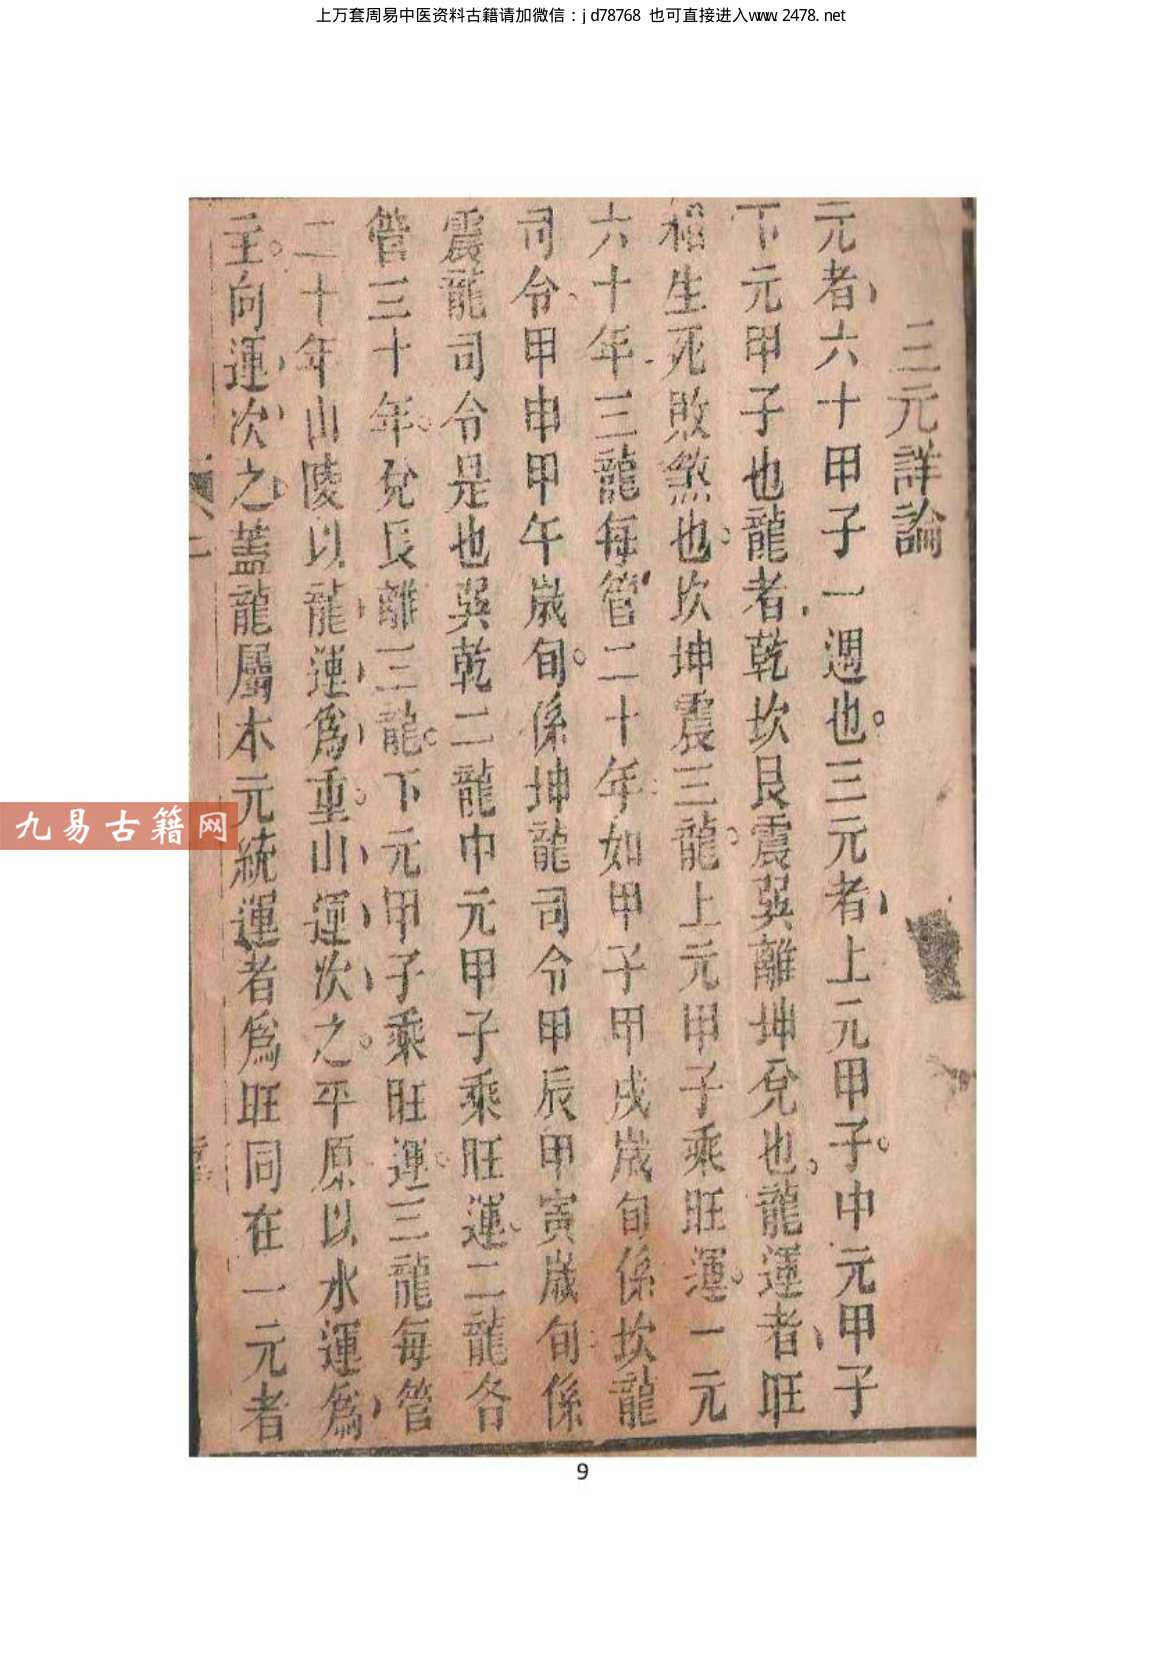 上万套周易中医资料古籍请加微信：jd78768 也可直接进入www.2478.net
三元詳論
元者六十甲子一週也。三元者上元甲子。中元甲子
下元甲子也龍者乾坎艮震巽離坤兌也。龍運者旺
相生死敗煞也。坎坤震三龍。上元甲子乘旺運。一元
六十年三龍每管二十年如甲子甲戌歲旬係坎龍
司令甲申甲午歲旬。係坤龍司令甲辰甲寅歲旬係
震龍司令是也巽乾二龍中元甲子乘旺運二龍各
管三十年。兌艮離三龍。下元甲子乘旺運。三龍每管
二十年山陵以龍運爲重。山運次之。平原以水運爲
主。向運次之蓋龍屬本元統運者爲旺同在一元者
九易古籍网
9